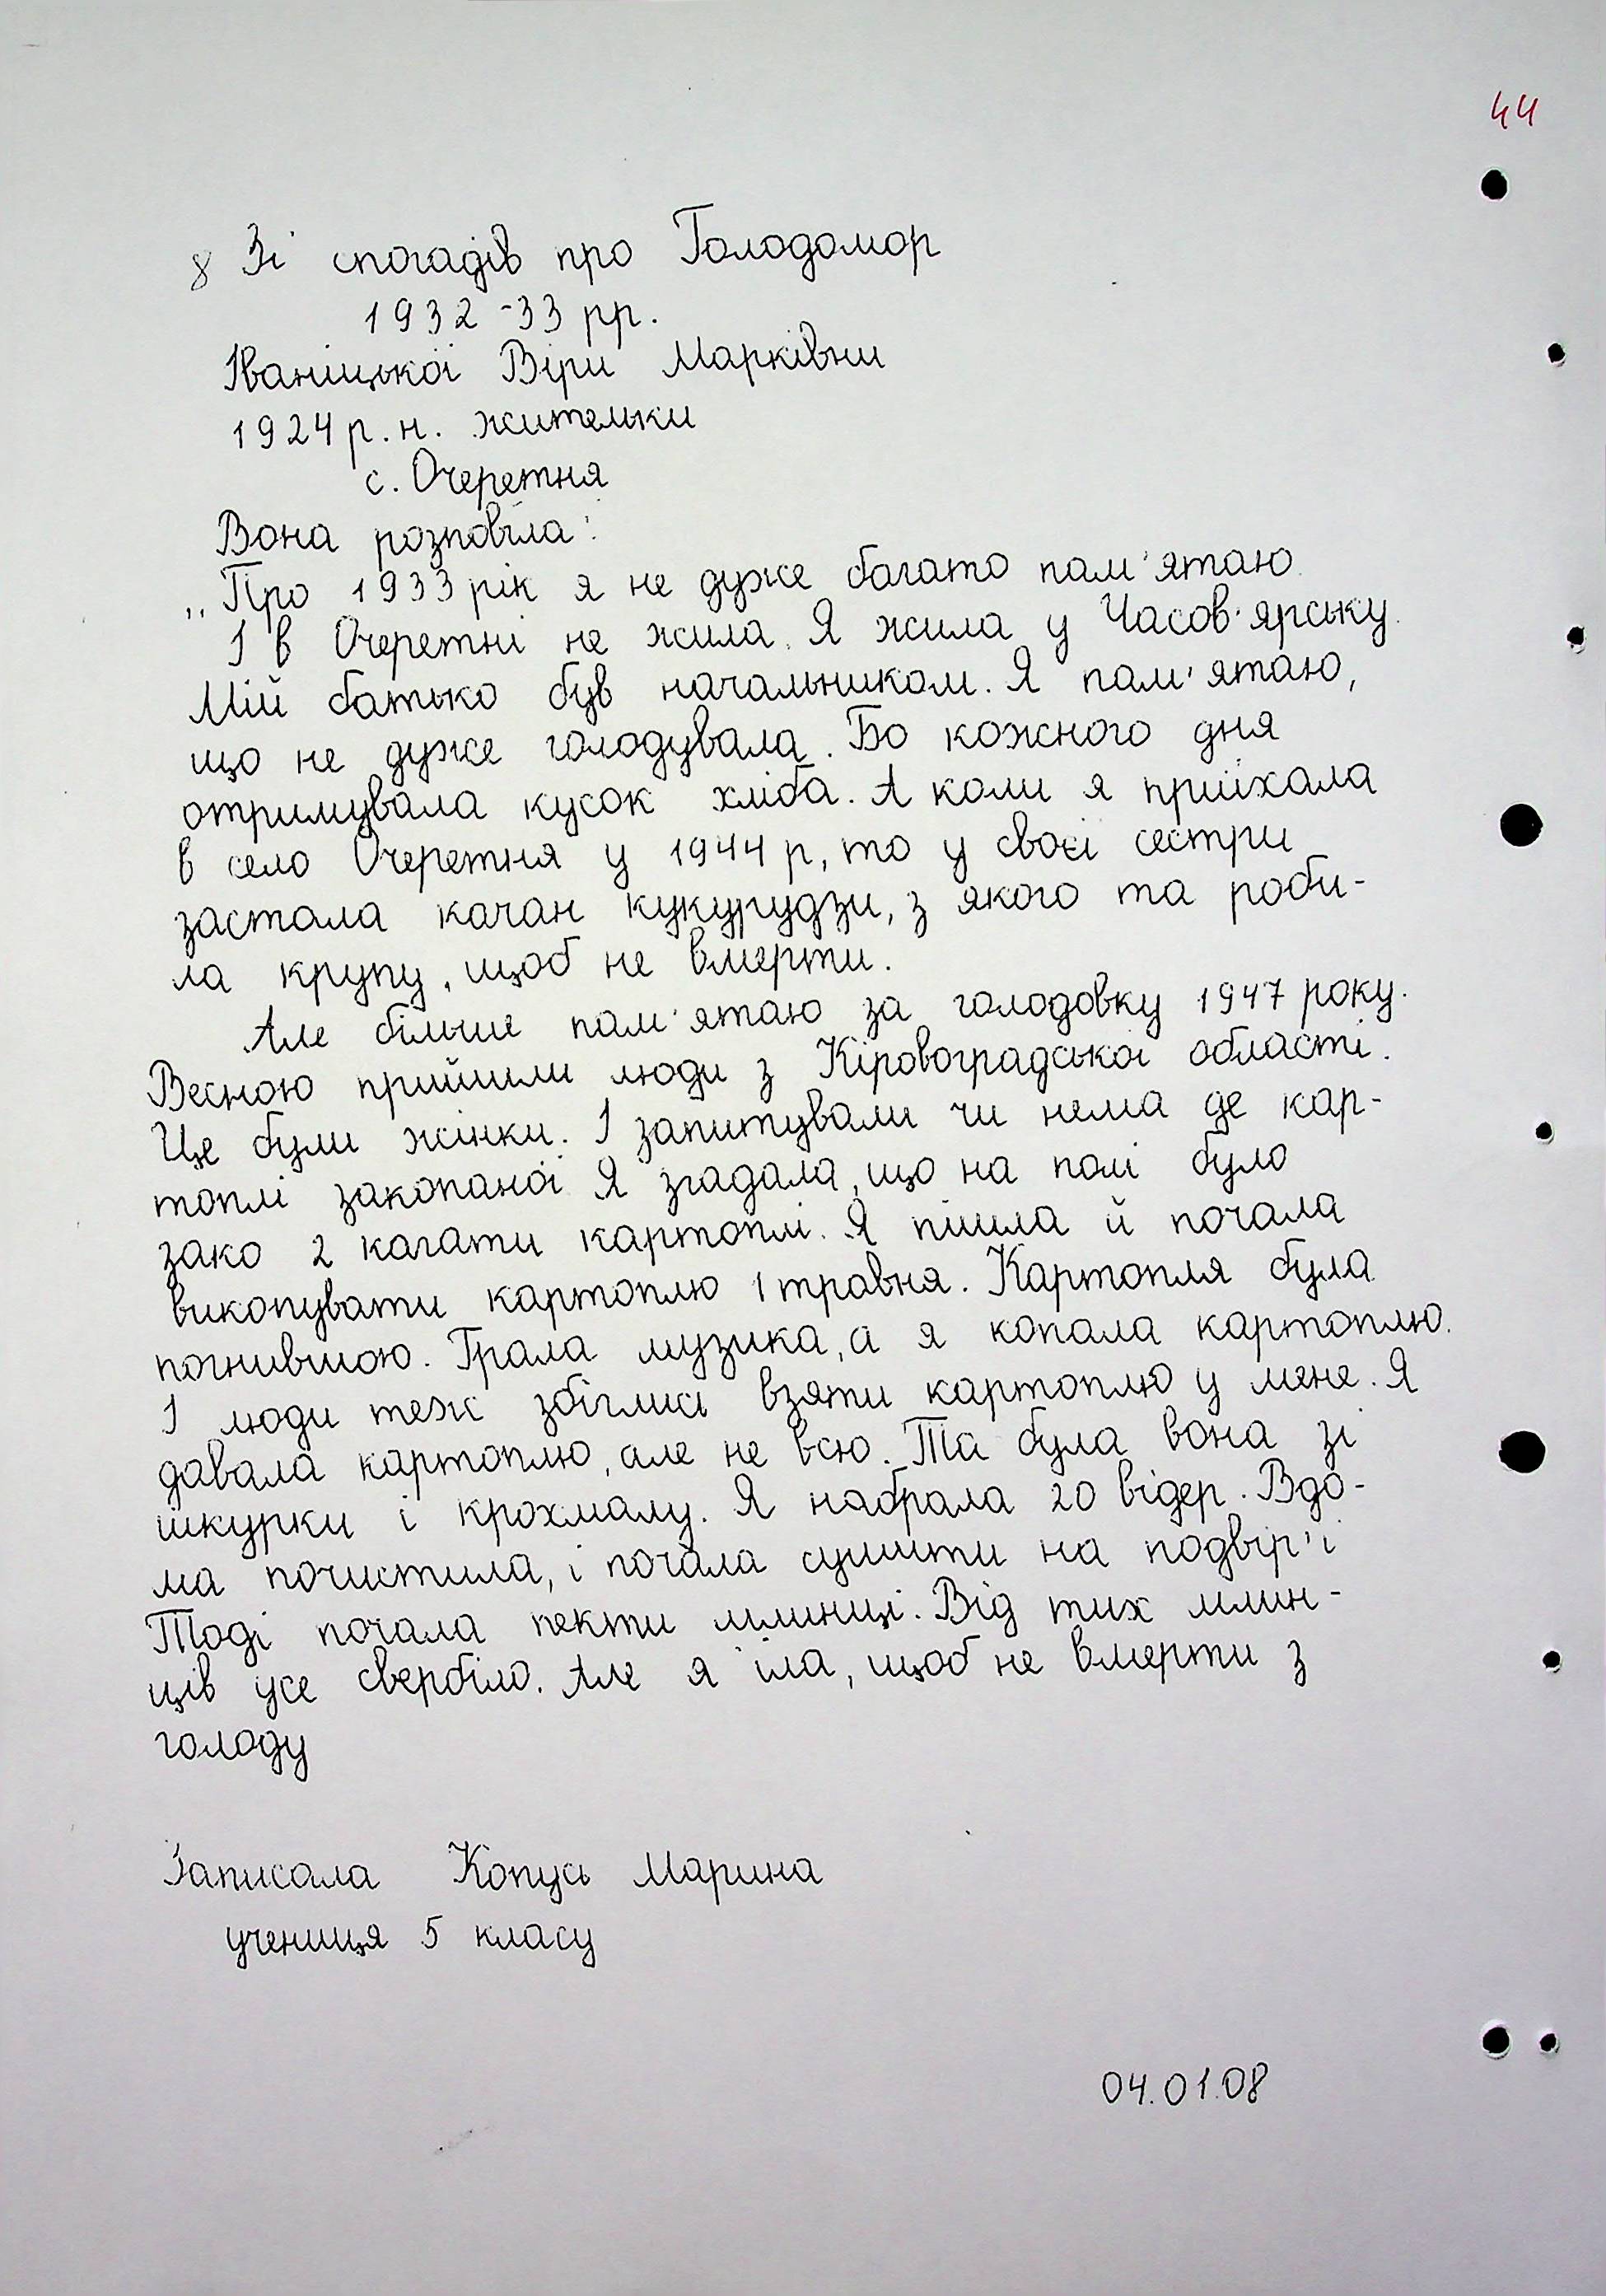 44
8 Зі спогадів про Голодомор
1932-33 рр.
Іваніцької Віри Марківни
1924 р. н. жительки
с. Очеретня
Вона розповіла:
„Про 1933 рік я не дуже багато пам'ятаю.
І в Очеретні не жила. Я жила у Часов'ярську.
Мій батько був начальником. Я пам'ятаю,
що не дуже голодувала. Бо кожного дня
отримувала кусок хліба. А коли я приїхала
в село Очеретня у 1944 р, то у своєї сестри
застала качан кукурудзи, з якого та роби-
ла крупу, щоб не вмерти.
Але більше пам'ятаю за голодовку 1947 року.
Весною прийшли люди з Кіровоградської області.
Це були жінки. І запитували чи нема де кар-
топлі закопаної Я згадала, що на полі було
зако 2 кагати картоплі. Я пішла й почала
викопувати картоплю 1 травня. Картопля була
погнившою. Грала музика, а я копала картоплю.
І люди теж збіглись взяти картоплю у мене. Я
давала картоплю, але не всю. Та була вона зі
шкурки і крохмалу. Я набрала 20 відер. Вдо-
ма почистила, і почала сушити на подвір'ї
Тоді почала пекти млинці. Від тих млин-
ців усе свербіло. Але я їла, щоб не вмерти з
голоду
Записала Копусь Марина
учениця 5 класу
04.01.08